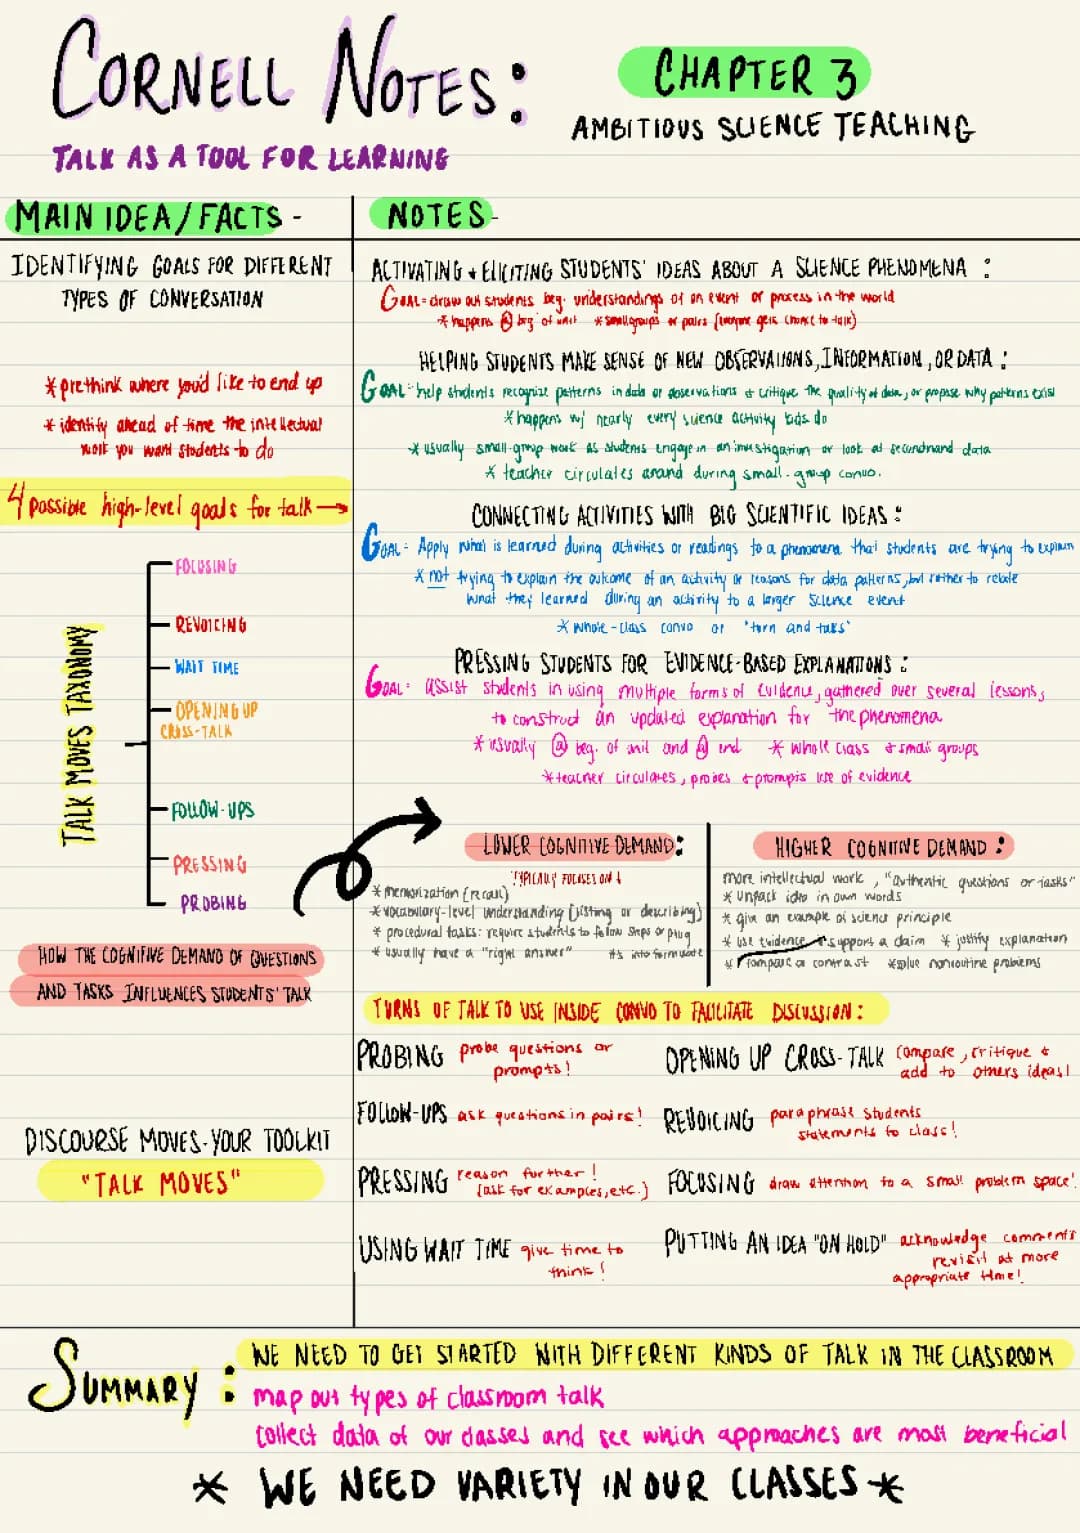 CORNELL NOTES:
CHAPTER 3
AMBITIOUS SCIENCE TEACHING
TALK AS A TOOL FOR LEARNING
MAIN IDEA/FACTS -
IDENTIFYING GOALS FOR DIFFERENT
TYPES OF CONVERSATION
* prethink where you'd like to end up
* identify ahead of time the intellectual
work you want students to do
4 possible high-level goals for talk →
TALK MOVES TAXONOMY
FOCUSING
REVOICING
WAIT TIME
OPENING UP
CROSS-TALK
FOLLOW-UPS
PRESSING
PROBING
HOW THE COGNITIVE DEMAND OF QUESTIONS
AND TASKS INFLUENCES STUDENTS' TALK
DISCOURSE MOVES-YOUR TOOLKIT
"TALK MOVES"
NOTES-
ACTIVATING + ELICITING STUDENTS' IDEAS ABOUT A SCIENCE PHENOMENA :
GOAL = draw out students beg. understandings of an event or process in the world
* happens @ beg of unit * small groups or pairs (everyone gets chance to talk)
HELPING STUDENTS MAKE SENSE OF NEW OBSERVATIONS, INFORMATION, OR DATA :
GOAL = help students recognize patterns in data or observations & critique the quality of data, or propose why patterns exist
* happens w/ nearly every science activity kids do
* usually small-group work as students engage in an investigation or look at secondhand data
* teacher circulates around during small-group convo.
CONNECTING ACTIVITIES WITH BIG SCIENTIFIC IDEAS :
GOAL = Apply what is learned during activities or readings to a phenomena that students are trying to explain
* not trying to explain the outcome of an activity or reasons for data patterns, but rather to relate
what they learned during an activity to a larger science event
* whole-class convo or "turn and talks"
PRESSING STUDENTS FOR EVIDENCE-BASED EXPLANATIONS :
GOAL = assist students in using multiple forms of evidence, gathered over several lessons,
to construct an updated explanation for the phenomena
* usually @ beg. of unit and @ end * whole class & small groups
* teacher circulates, probes & prompts use of evidence
LOWER COGNITIVE DEMAND:
TYPICALLY FOCUSES ON ↓
* memorization (recall)
* vocabulary-level understanding (listing or describing)
* procedural tasks: require students to follow steps or plug
#s into formulate
* usually have a "right answer"
HIGHER COGNITIVE DEMAND :
more intellectual work, "authentic questions or tasks"
* unpack idea in own words
* give an example of science principle
* use evidence & support a claim * justify explanation
* compare or contrast * solve nonroutine problems
TURNS OF TALK TO USE INSIDE CONVO TO FACILITATE DISCUSSION :
PROBING probe questions or
prompts!
OPENING UP CROSS-TALK compare, critique &
add to others ideas!
FOLLOW-UPS ask questions in pairs!
REVOICING paraphrase students
statements to class!
PRESSING reason further!
(ask for examples, etc.)
FOCUSING draw attention to a small problem space!
USING WAIT TIME give time to
think!
PUTTING AN IDEA "ON HOLD" acknowledge comments
revisit at more
appropriate time!
SUMMARY :
WE NEED TO GET STARTED WITH DIFFERENT KINDS OF TALK IN THE CLASSROOM
map out types of classroom talk
collect data of our classes and see which approaches are most beneficial
* WE NEED VARIETY IN OUR CLASSES *